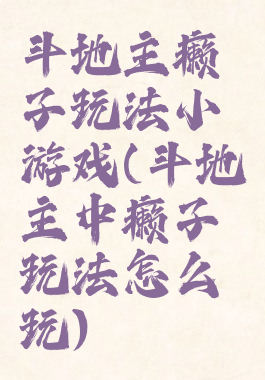 斗地主癞
子玩法小
游戏(斗地
主中癞子
玩法怎么
玩)